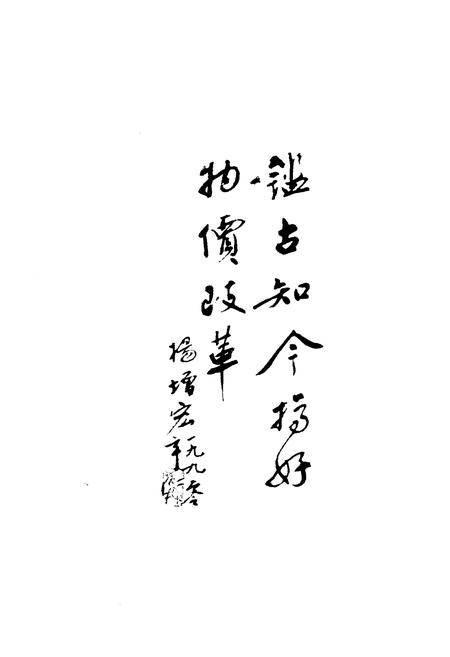 鑑古知今搞好
物價改革
楊增宏
一九九零年